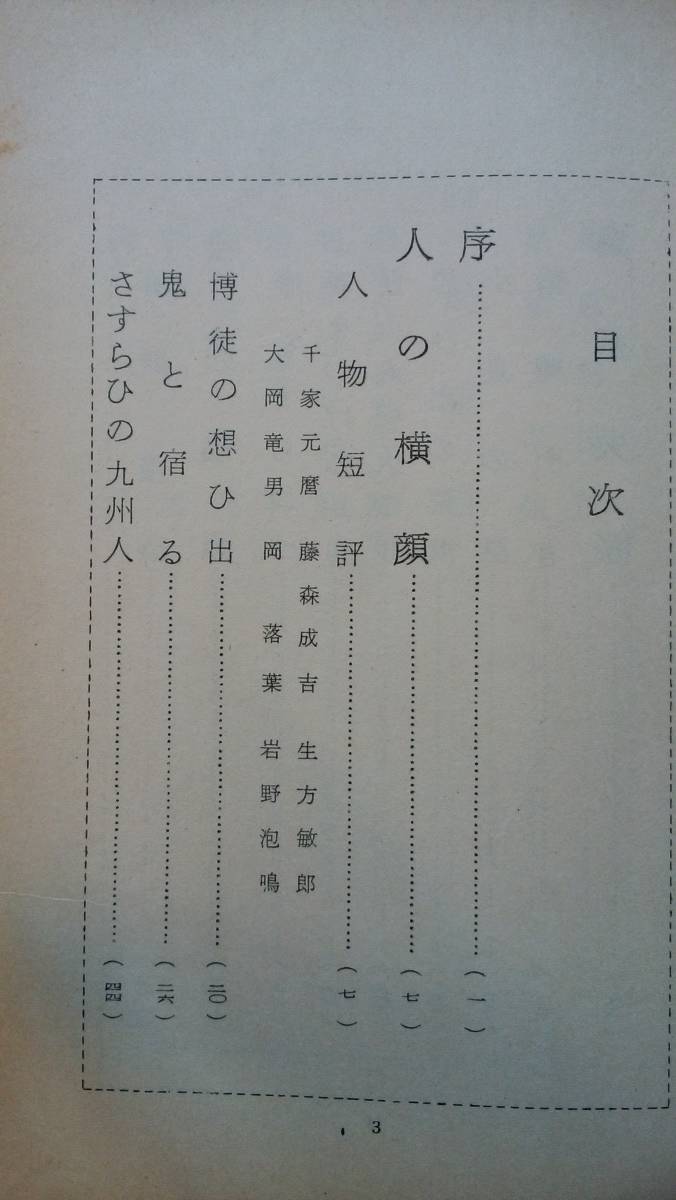 目次
序……(一)
人の横顔……(七)
人物短評……(七)
千家元麿 藤森成吉 生方敏郎
大岡竜男 岡落葉 岩野泡鳴
博徒の想ひ出……(二〇)
鬼と宿る……(二六)
さすらひの九州人……(四四)
3